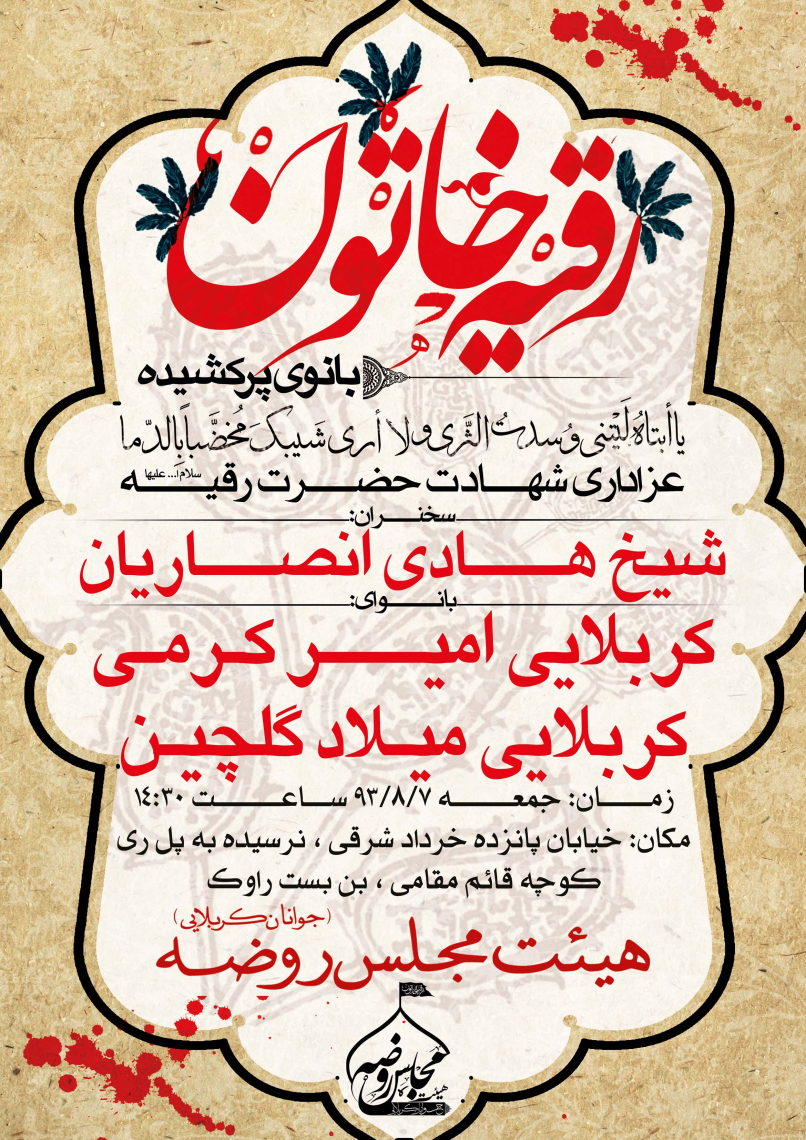 رقیه خاتون
بانوی پرکشیده
یا أبتاهُ لَیتَنی وُسدتُ الثَّری ولا أری شَیبکَ مُخضَّباً بِالدّما
عزاداری شهادت حضرت رقیه سلام ا... علیها
سخنران:
شیخ هادی انصاریان
بانوای:
کربلایی امیر کرمی
کربلایی میلاد گلچین
زمان: جمعه ۹۳/۸/۷ ساعت ۱٤:۳۰
مکان: خیابان پانزده خرداد شرقی ، نرسیده به پل ری
کوچه قائم مقامی ، بن بست راوک
(جوانان کربلایی)
هیئت مجلس روضه
هیئت مجلس روضه